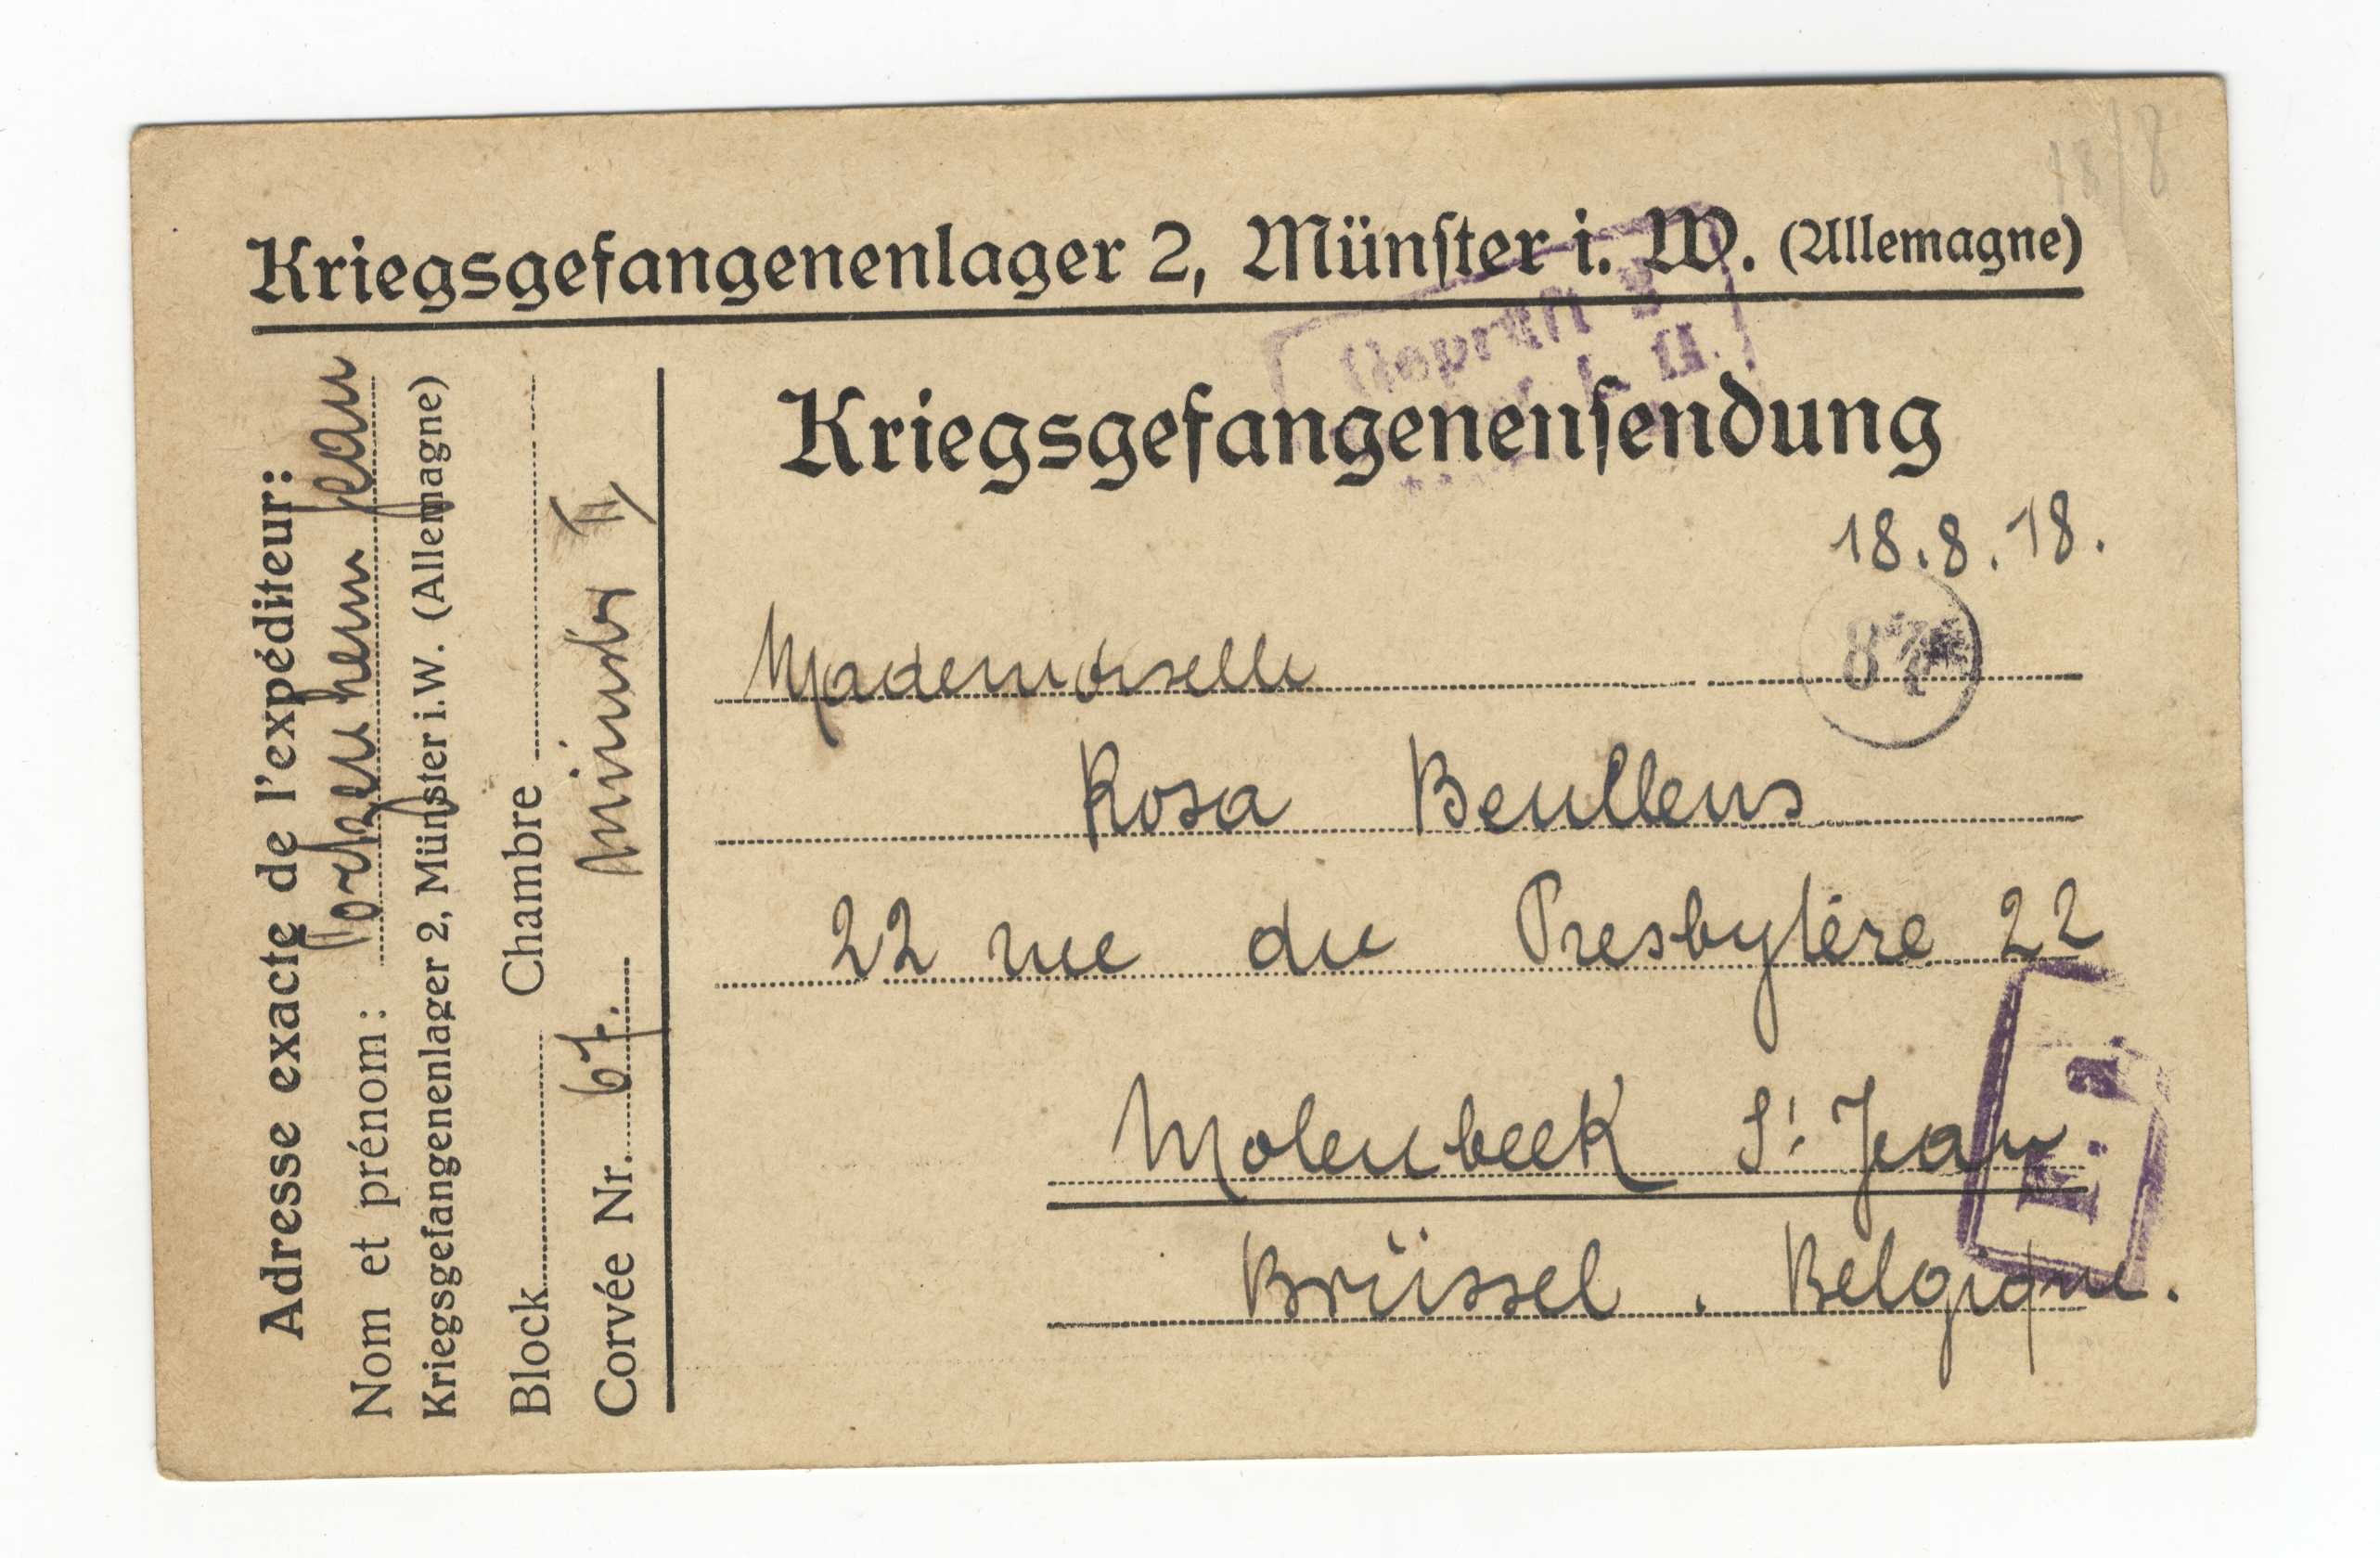 18/8
Kriegsgefangenenlager 2, Münſter i. W. (Allemagne)
Geprüft
Kriegsgefangenenſendung
18.8.18.
87
Mademoiselle
Rosa Beullens
22 rue du Presbytère 22
Molenbeek St Jean
Brüssel . Belgique.
F. a.
Adresse exacte de l'expéditeur:
Nom et prénom: Jean
Kriegsgefangenenlager 2, Münster i. W. (Allemagne)
Block Chambre
Corvée Nr. 67. Münster II